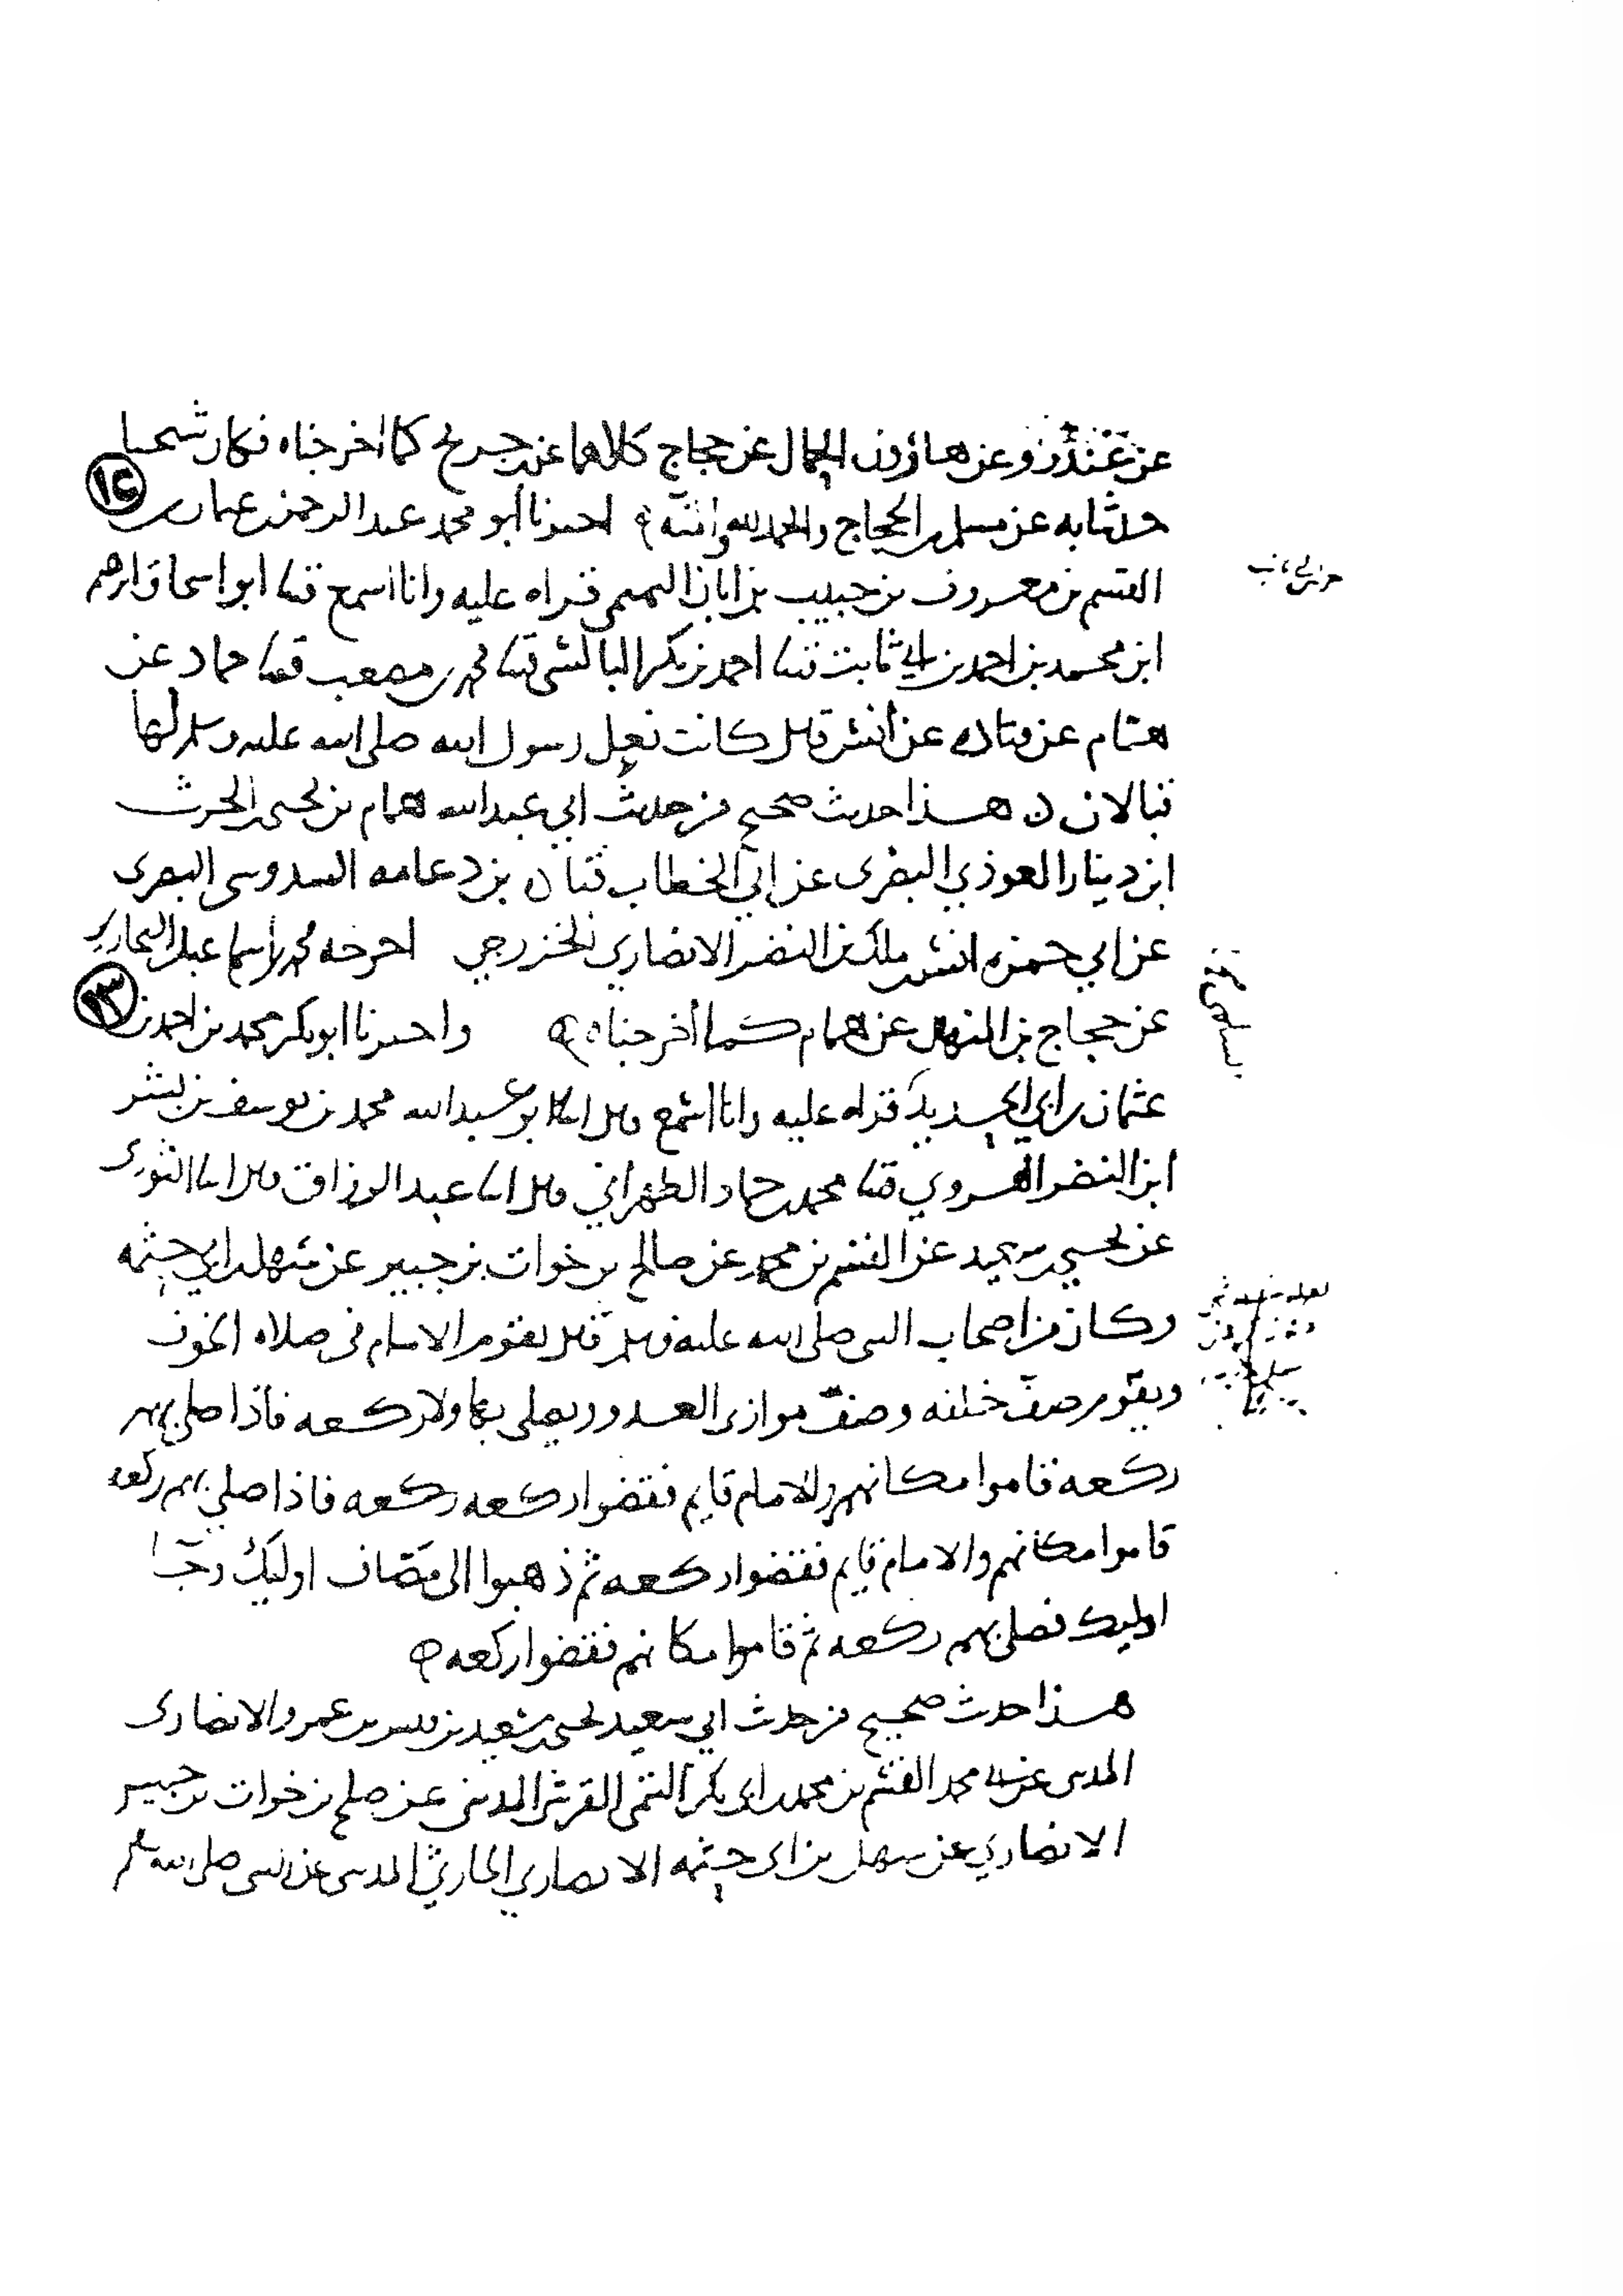 عن غندر وعن هارون الجمال عن حجاج كلاهما عن جريج كما اخرجناه فكان شيخنا
حدثنا به عن مسلم بن الحجاج والحمد لله والمنه اخبرنا أبو محمد عبد الرحمن بن عثمان بن
١٢
القسم بن معروف بن حبيب بن ابان التميمي قراه عليه وانا اسمع ثنا ابو اسحاق ابرهيم
ابن محمد بن احمد بن ابي ثابت ثنا احمد بن بكر البالسي ثنا محمد بن مصعب ثنا حماد عن
همام عن قتاده عن أنس قال كانت نعل رسول الله صلى الله عليه وسلم لها
قبالان هذا حديث صحيح من حديث ابي عبد الله همام بن يحيى الحرث
ابن دينار العوذي البصرى عن ابي الخطاب قتاده بن دعامه السدوسى البصرى
عن ابي حمزه انس بن ملك بن النضر الانصاري الخزرجي اخرجه محمد بن اسماعيل البخارى
١٣
عن حجاج بن المنهال عن همام كما أخرجناه واخبرنا ابو بكر محمد بن احمد بن
عثمان بن ابي الحديد قراه عليه وانا اسمع قال انا ابو عبد الله محمد بن يوسف بن بشر
ابن النضر الهروي ثنا محمد بن حماد الطهراني قال انا عبد الرزاق قال انا الثورى
عن يحيى بن سعيد عن القسم بن محمد عن صالح بن خوات بن جبير عن سهل بن ابي حثمه
وكان من اصحاب النبى صلى الله عليه وسلم قال يقوم الامام فى صلاه الخوف
ويقوم صف خلفه وصف موازى العدو ويصلى بهاولا ركعه فاذا صلى بهم
ركعه قاموا مكانهم والامام قايم فقضوا ركعه ركعه فاذا صلى بهم ركعه
قاموا مكانهم والامام قايم فقضوا ركعه ثم ذهبوا الى مصاف اوليك وجا
اوليك فصلى بهم ركعه ثم قاموا مكانهم فقضوا ركعه
هذا حديث صحيح من حديث ابي سعيد يحيى بن سعيد بن قيس بن عمرو الانصارى
المدنى عن ابي محمد القسم بن محمد بن ابى بكر التيمى القرشى المدنى عن صلح بن خوات بن جبير
الانصاري عن سهل بن ابى حثمه الانصاري الحارثي المدنى عن النبى صلى الله عليه وسلم